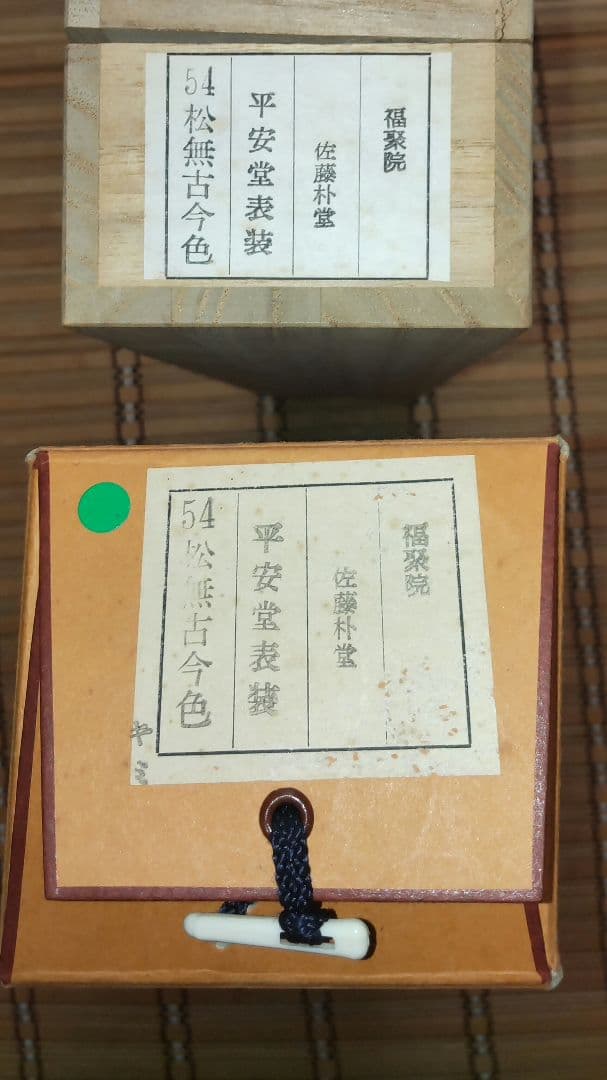 福聚院
佐藤朴堂
平安堂表装
54松無古今色
福聚院
佐藤朴堂
平安堂表装
54松無古今色
ヤミ